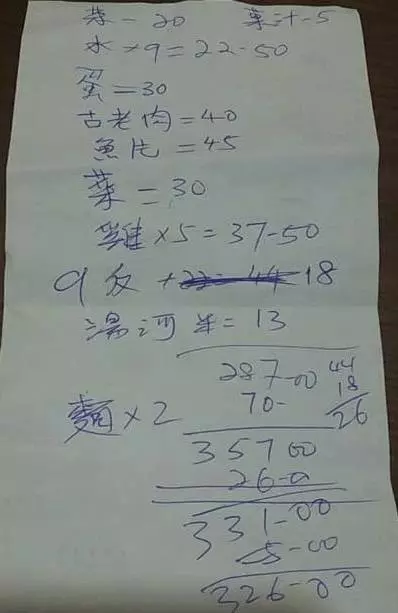 茶-20 菓汁-5
水×9=22-50
蛋=30
古老肉=40
魚片=45
菜=30
雞×5=37-50
9反 18
湯河 = 13
287-00 44
70- 18
麵×2 26
357 00
26-0
331-00
5-00
326-00